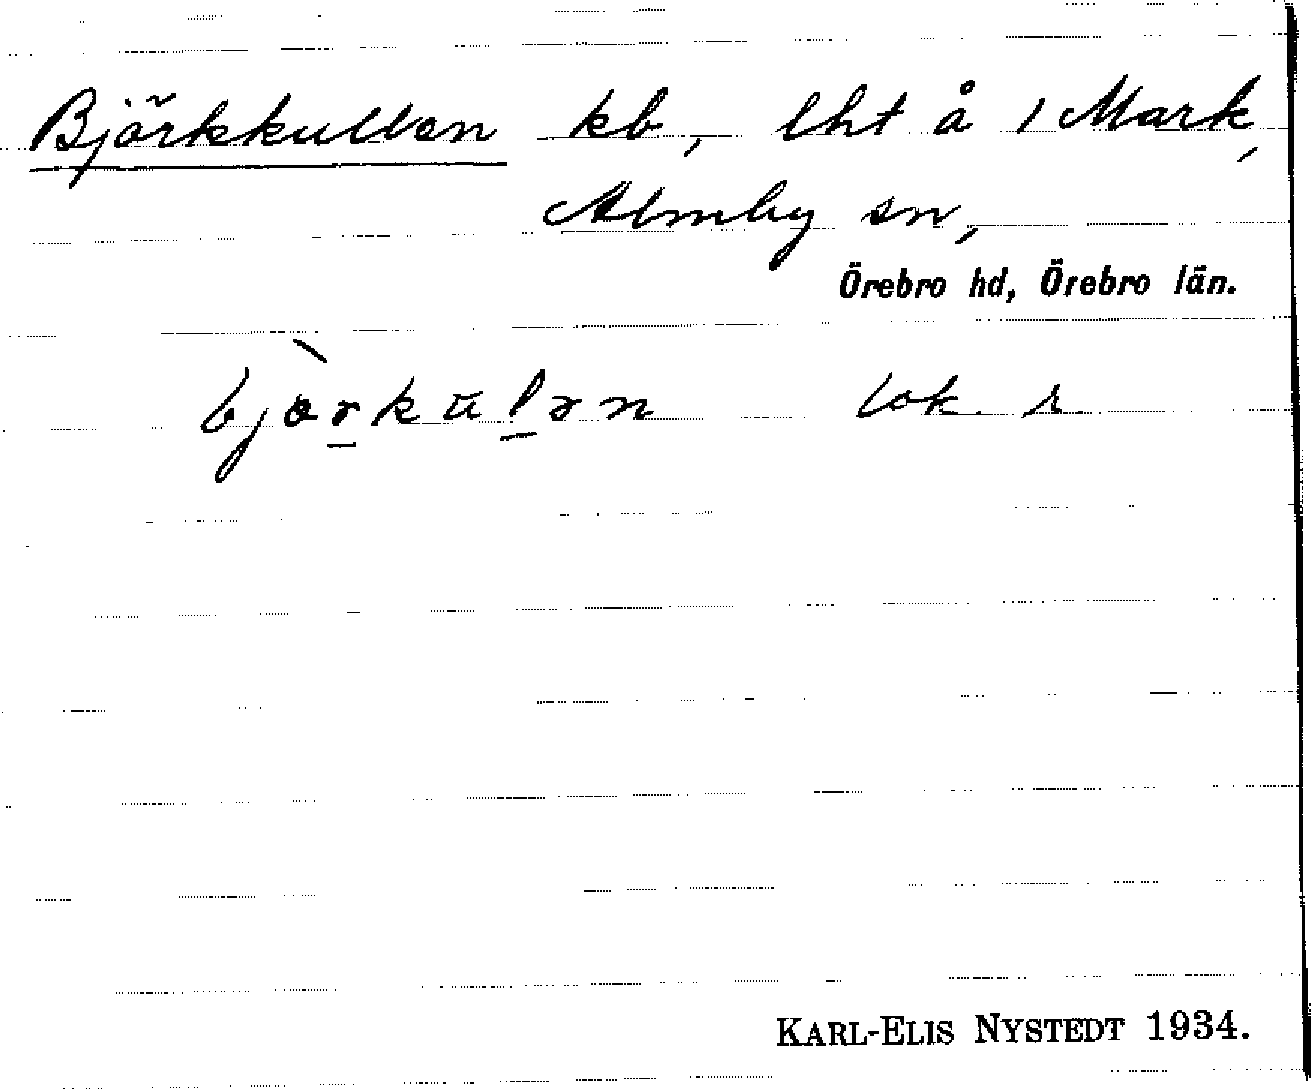 Björkkullen kb, lht å 1 Mark,
Almby sn,
Örebro hd, Örebro län.
bjò̀rkulən lok. s
KARL-ELIS NYSTEDT 1934.